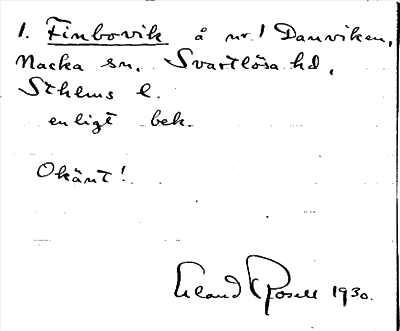 1. Finbovik å nr. 1 Danviken,
Nacka sn. Svartlösa hd,
Sthlms l.
enligt bek.
Okänt!
Erland Rosell 1930.